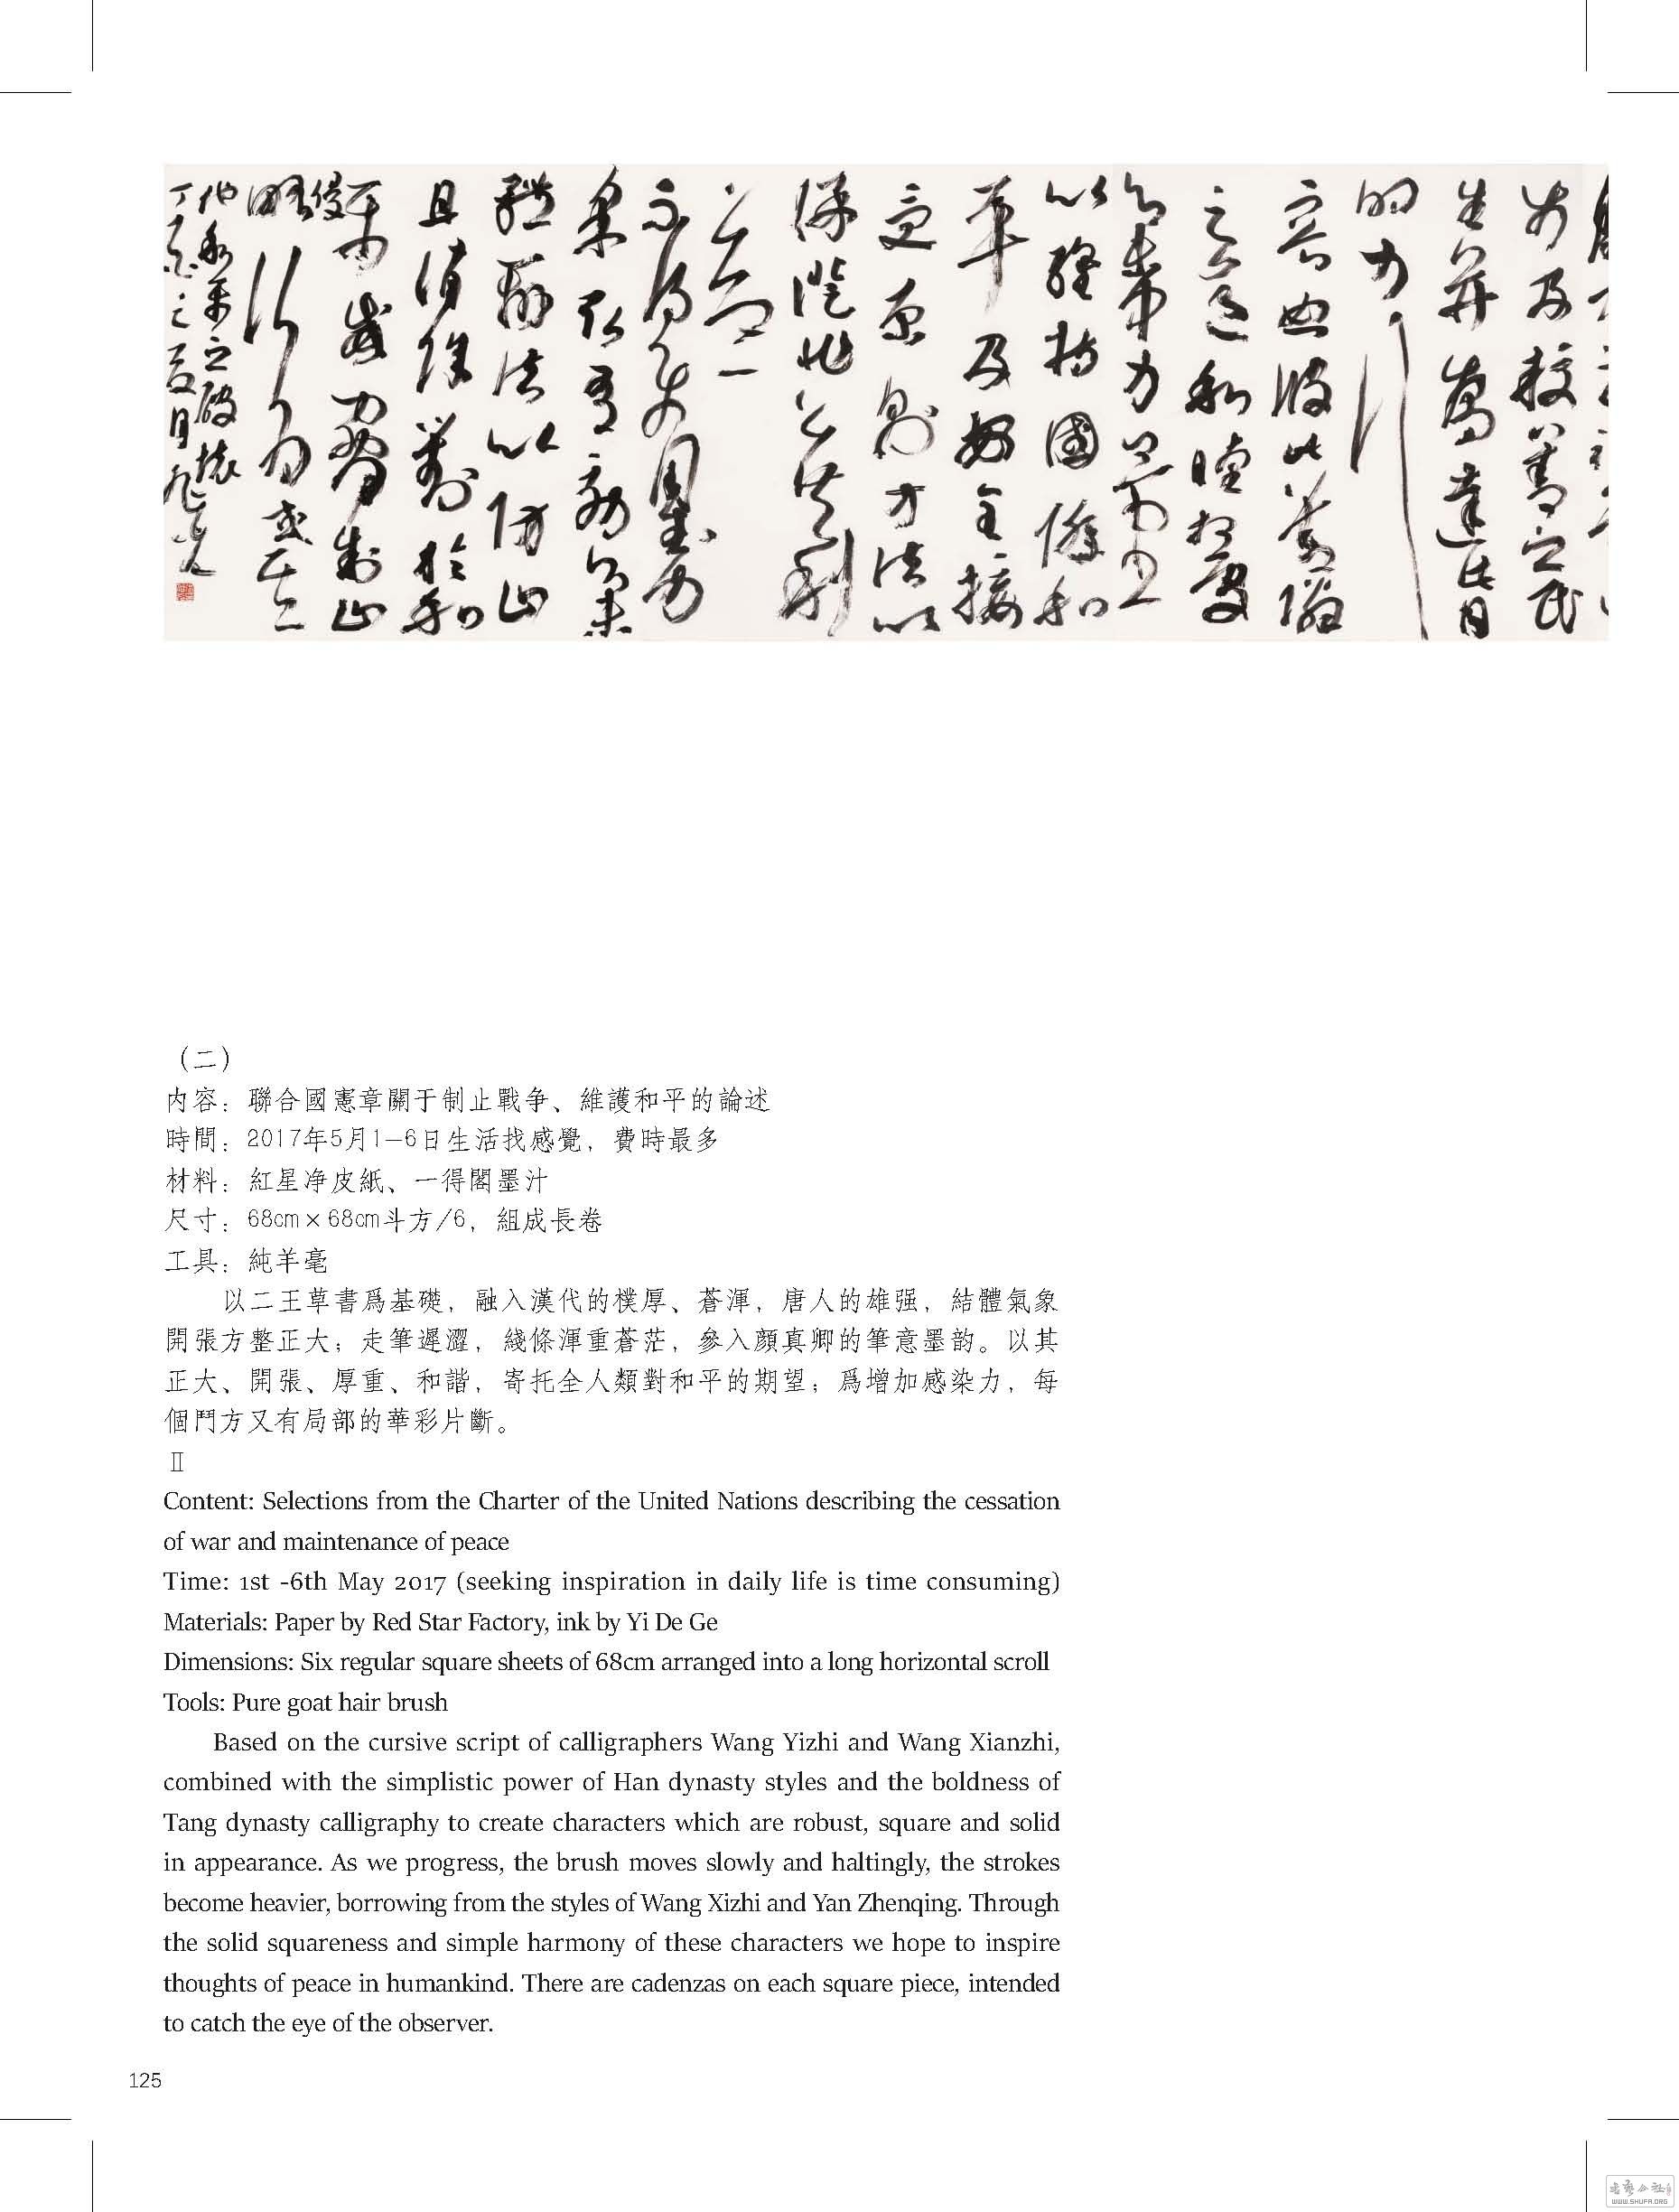 步及較善之民
生并為達此目
的力行
容恕彼此善鄰
之道和睦相處
以維持國際和
平及接
受原則方法以
保證非公共利
不得使用武力
采取有效集
體辦法以防止
且消除對於和
平威脅制止
侵略行為或其
他和平之破壞
丁酉之夏月
（二）
内容：聯合國憲章關于制止戰争、維護和平的論述
時間：2017年5月1-6日生活找感覺，費時最多
材料：紅星净皮紙、一得閣墨汁
尺寸：68cm×68cm斗方/6，組成長卷
工具：純羊毫
以二王草書爲基礎，融入漢代的樸厚、蒼渾，唐人的雄强，結體氣象
開張方整正大；走筆遲澀，綫條渾重蒼茫，參入顔真卿的筆意墨韵。以其
正大、開張、厚重、和諧，寄托全人類對和平的期望；爲增加感染力，每
個鬥方又有局部的華彩片斷。
Ⅱ
Content: Selections from the Charter of the United Nations describing the cessation
of war and maintenance of peace
Time: 1st -6th May 2017 (seeking inspiration in daily life is time consuming)
Materials: Paper by Red Star Factory, ink by Yi De Ge
Dimensions: Six regular square sheets of 68cm arranged into a long horizontal scroll
Tools: Pure goat hair brush
Based on the cursive script of calligraphers Wang Yizhi and Wang Xianzhi,
combined with the simplistic power of Han dynasty styles and the boldness of
Tang dynasty calligraphy to create characters which are robust, square and solid
in appearance. As we progress, the brush moves slowly and haltingly, the strokes
become heavier, borrowing from the styles of Wang Xizhi and Yan Zhenqing. Through
the solid squareness and simple harmony of these characters we hope to inspire
thoughts of peace in humankind. There are cadenzas on each square piece, intended
to catch the eye of the observer.
125
WWW.SHUFA.ORG